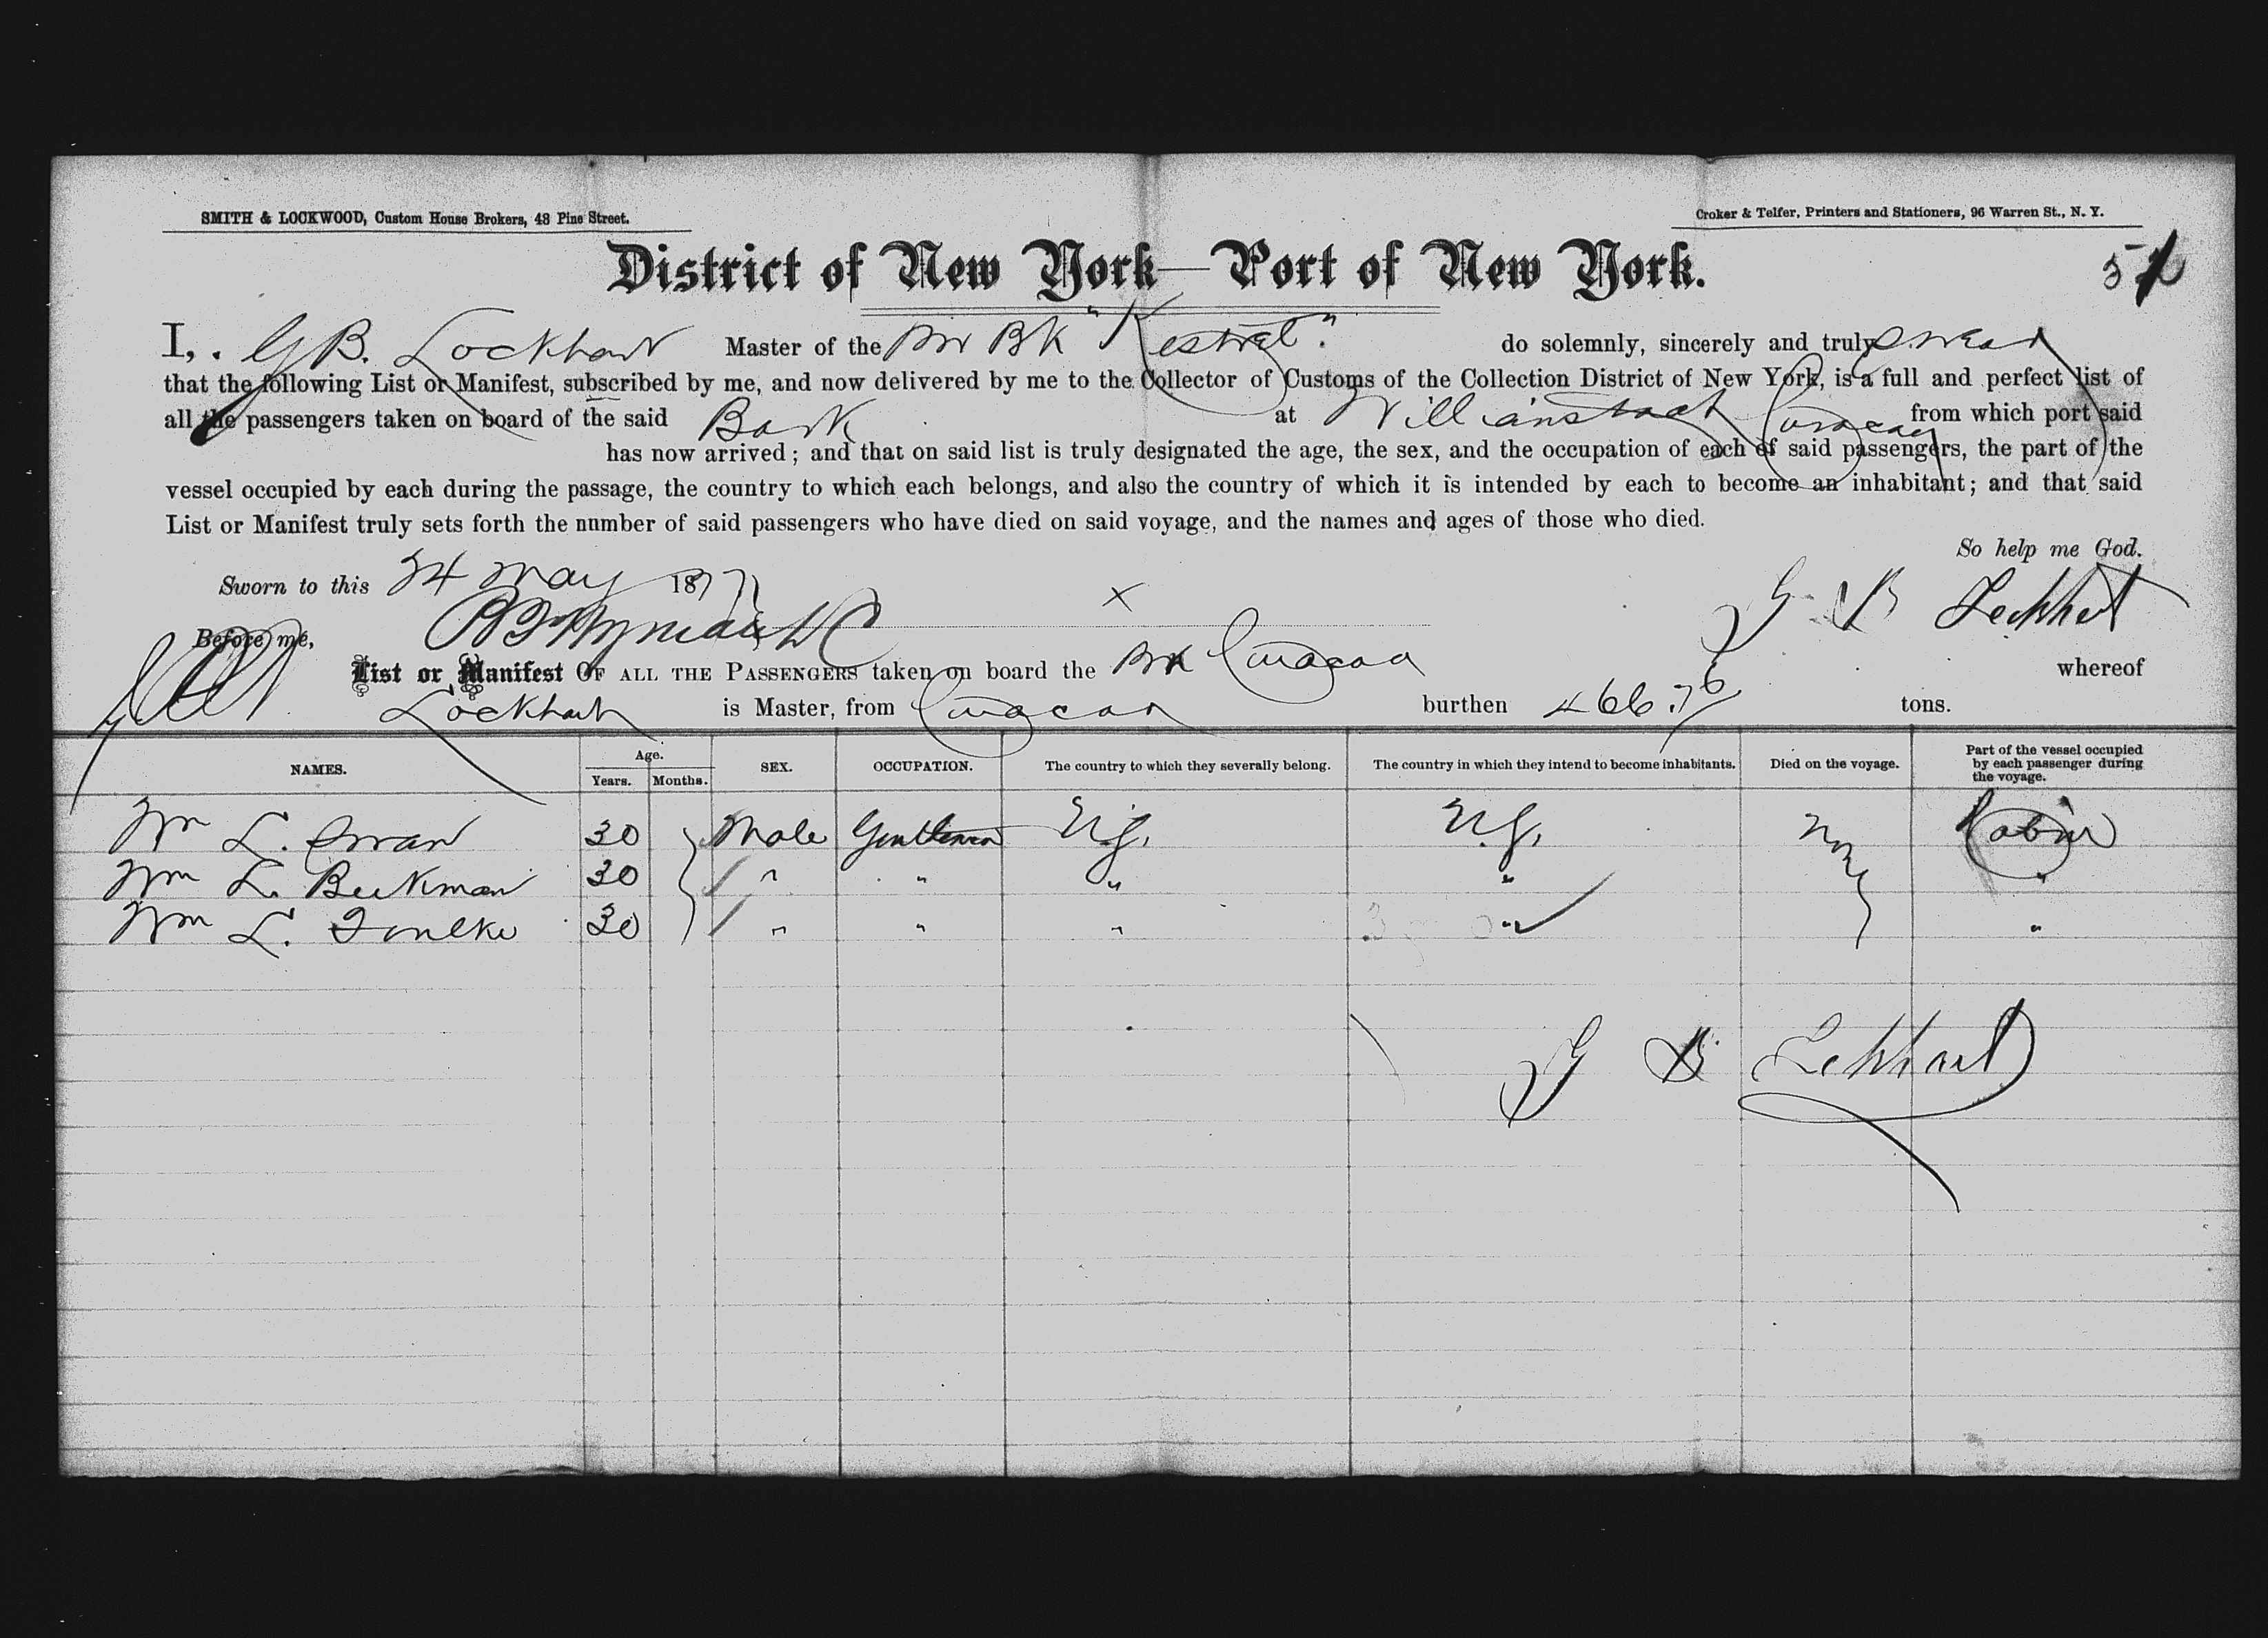 SMITH & LOCKWOOD, Custom House Brokers, 48 Pine Street.
Croker & Telfer, Printers and Stationers, 96 Warren St., N. Y.
District of New York—Port of New York.
I, G B. Lockhart Master of the Br Bk "Kestrel" do solemnly, sincerely and truly swear
that the following List or Manifest, subscribed by me, and now delivered by me to the Collector of Customs of the Collection District of New York, is a full and perfect list of
all the passengers taken on board of the said Bark at Willianstadt Curacao from which port said
has now arrived; and that on said list is truly designated the age, the sex, and the occupation of each of said passengers, the part of the
vessel occupied by each during the passage, the country to which each belongs, and also the country of which it is intended by each to become an inhabitant; and that said
List or Manifest truly sets forth the number of said passengers who have died on said voyage, and the names and ages of those who died.
So help me God.
Sworn to this 24 May 1877 X G B Lockhart
Before me,
List or Manifest OF ALL THE PASSENGERS taken on board the Bk Curacoa whereof
Lockhart is Master, from Curacoa burthen 466.76 tons.
NAMES. Age. Years. Months. SEX. OCCUPATION. The country to which they severally belong. The country in which they intend to become inhabitants. Died on the voyage. Part of the vessel occupied by each passenger during the voyage.
Wm L. 30 Male Gentleman Cabin
Wm L. Beekman 30 " " " " "
Wm L. Foulke 30 " " " " "
G B Lockhart